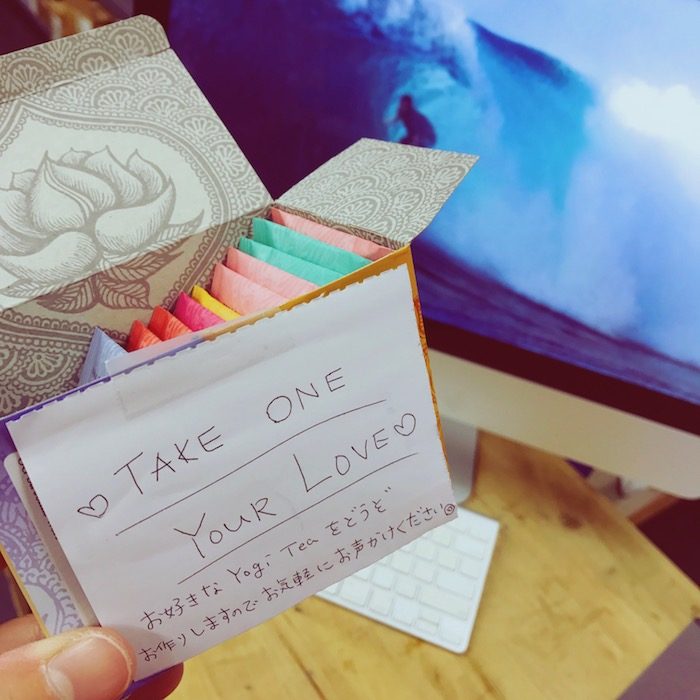 ♡ TAKE ONE
YOUR LOVE ♡
お好きな Yogi Tea をどうぞ
お作りしますのでお気軽にお声がけください☺